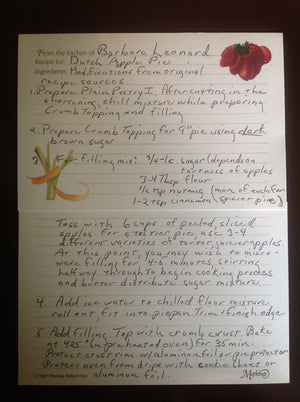 From the kitchen of Barbara Leonard
Recipe for: Dutch Apple Pie
Ingredients: Modifications from original
recipe sources.
1. Prepare Plain Pastry I. After cutting in the
shortening, chill mixture while preparing
Crumb Topping and filling
2. Prepare Crumb Topping for 9" pie using dark
brown sugar
3. For filling mix: 3/4-1 c. sugar (depends on
tartness of apples
3-4 Tbsp flour
1/2 tsp nutmeg (more of each for
1-2 tsp cinnamon spicier pie)
Toss with 6 cups of peeled, sliced
apples. For a tastier pie, use 3-4
different varieties of tarter, juicier apples.
At this point, you may wish to micro-
wave filling for 4-6 minutes, stirring
halfway through to begin cooking process
and better distribute sugar mixture.
4. Add ice water to chilled flour mixture,
roll out, fit into piepan. Trim & finish edge.
5. Add filling. Top with crumb crust. Bake
at 425° (in preheated oven) for 35 min.
Protect crust rim w/ aluminum foil or pie protector
Protect oven from drips with cookie sheet or
aluminum foil.
Thomas Nelson Inc.